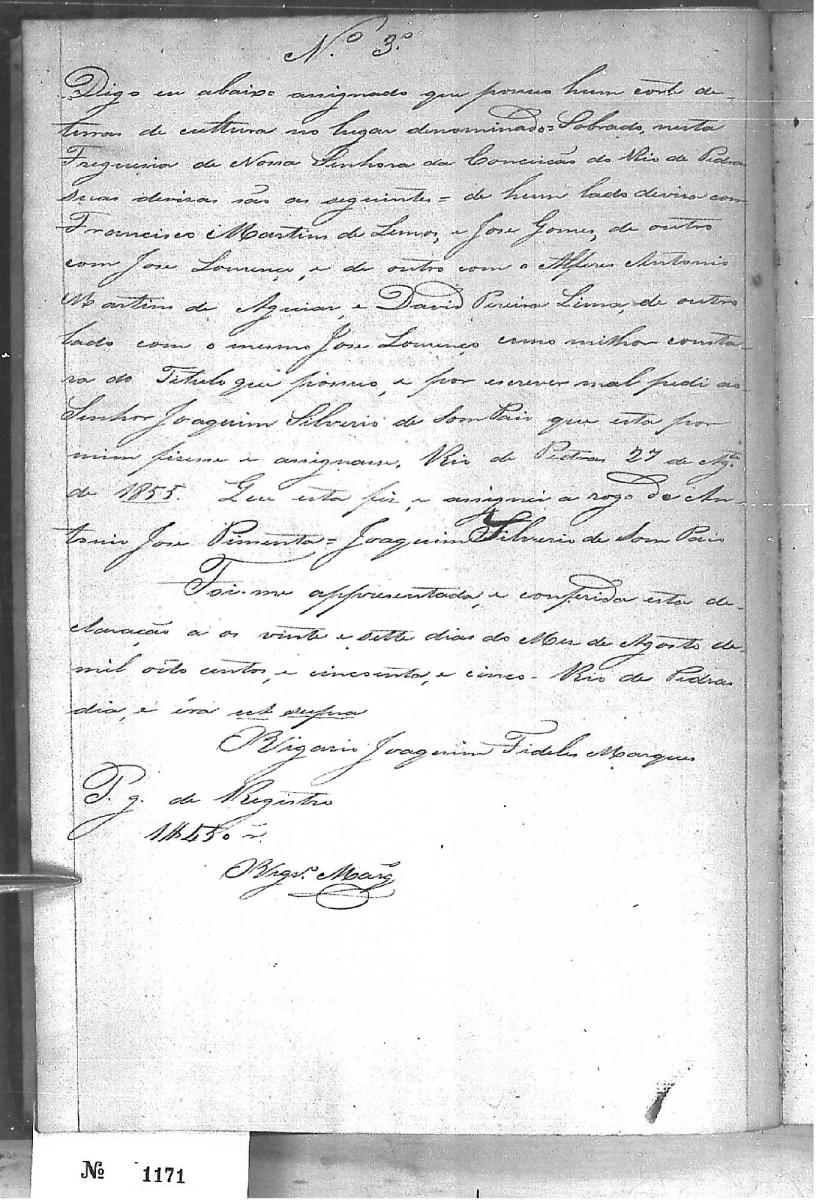 N.º 3.º
Digo eu abaixo assignado que possuo hum corte de-
terras de cultura no lugar denominado=Sobrado, nesta
Freguesia de Nossa Senhora da Conceicão do Rio de Pedras
suas devizas são as seguintes= de hum lado deviza com
Francisco Martins de Lemos, e Jose Gomes, de outro
com Jose Lourenço, e de outro com o Alferes Antonio
Martins de Aguiar, e David Pereira Lima, de outro
lado com o mesmo Jose Lourenço como milhor consta-
ra do Titulo que possuo, e por escrever mal pedi ao
Senhor Joaquim Silverio de Som Paio que esta por
mim fizesse e assignasse. Rio de Pedras 27 de Agt.º
de 1855. Que esta fiz, e assignei a rogo de An-
tonio Jose Pimenta= Joaquim Silverio de Som Paio
Foi-me appresentada, e conferida esta de-
claração a os vinte e sette dias do Mes de Agosto de-
mil oito centos, e cincoenta, e cinco- Rio de Pedras
dia, e éra ut supra
O Vigario Joaquim Fideles Marques
P. g. de Registro
1$450 r.
O Vigr.º Marq.
Nº 1171